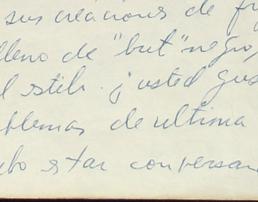 sus creaciones de
lleno de "but" negro,
l estilo. ¡usted gus
blemas de ultima
ubo estar conversan